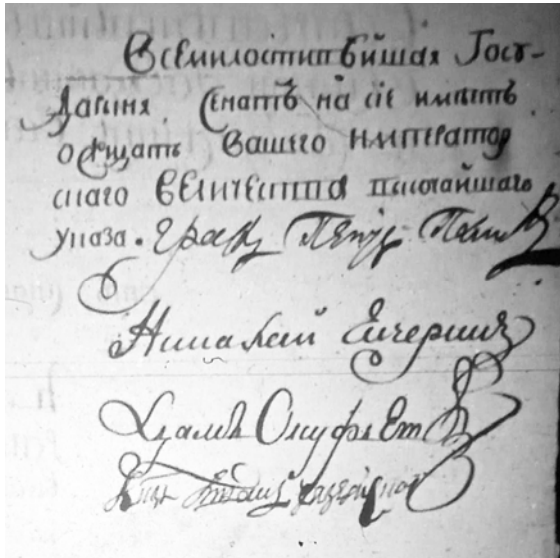 Всемилостивѣйшая Госу-
дарыня. Сенатъ на сіе имѣетъ
ожидать Вашего Император
скаго величества высочайшаго
указа. Графъ Петръ Панинъ
Николай Чичеринъ
Адамъ Олсуфьевъ
Князь